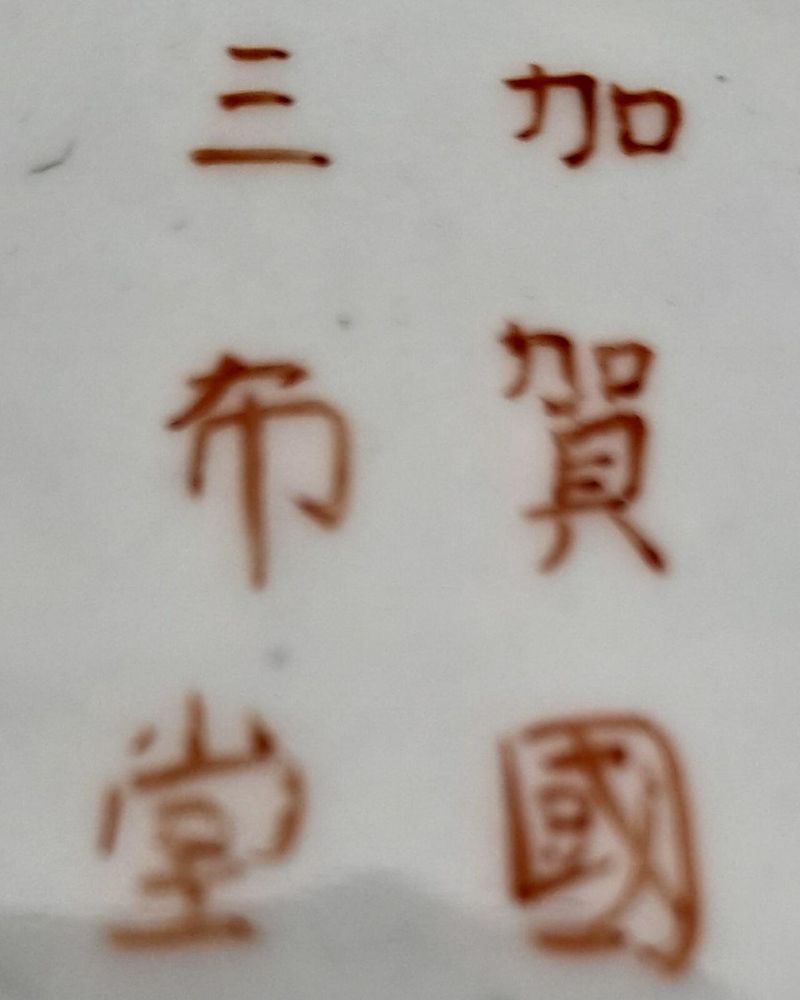 加賀國
三布堂